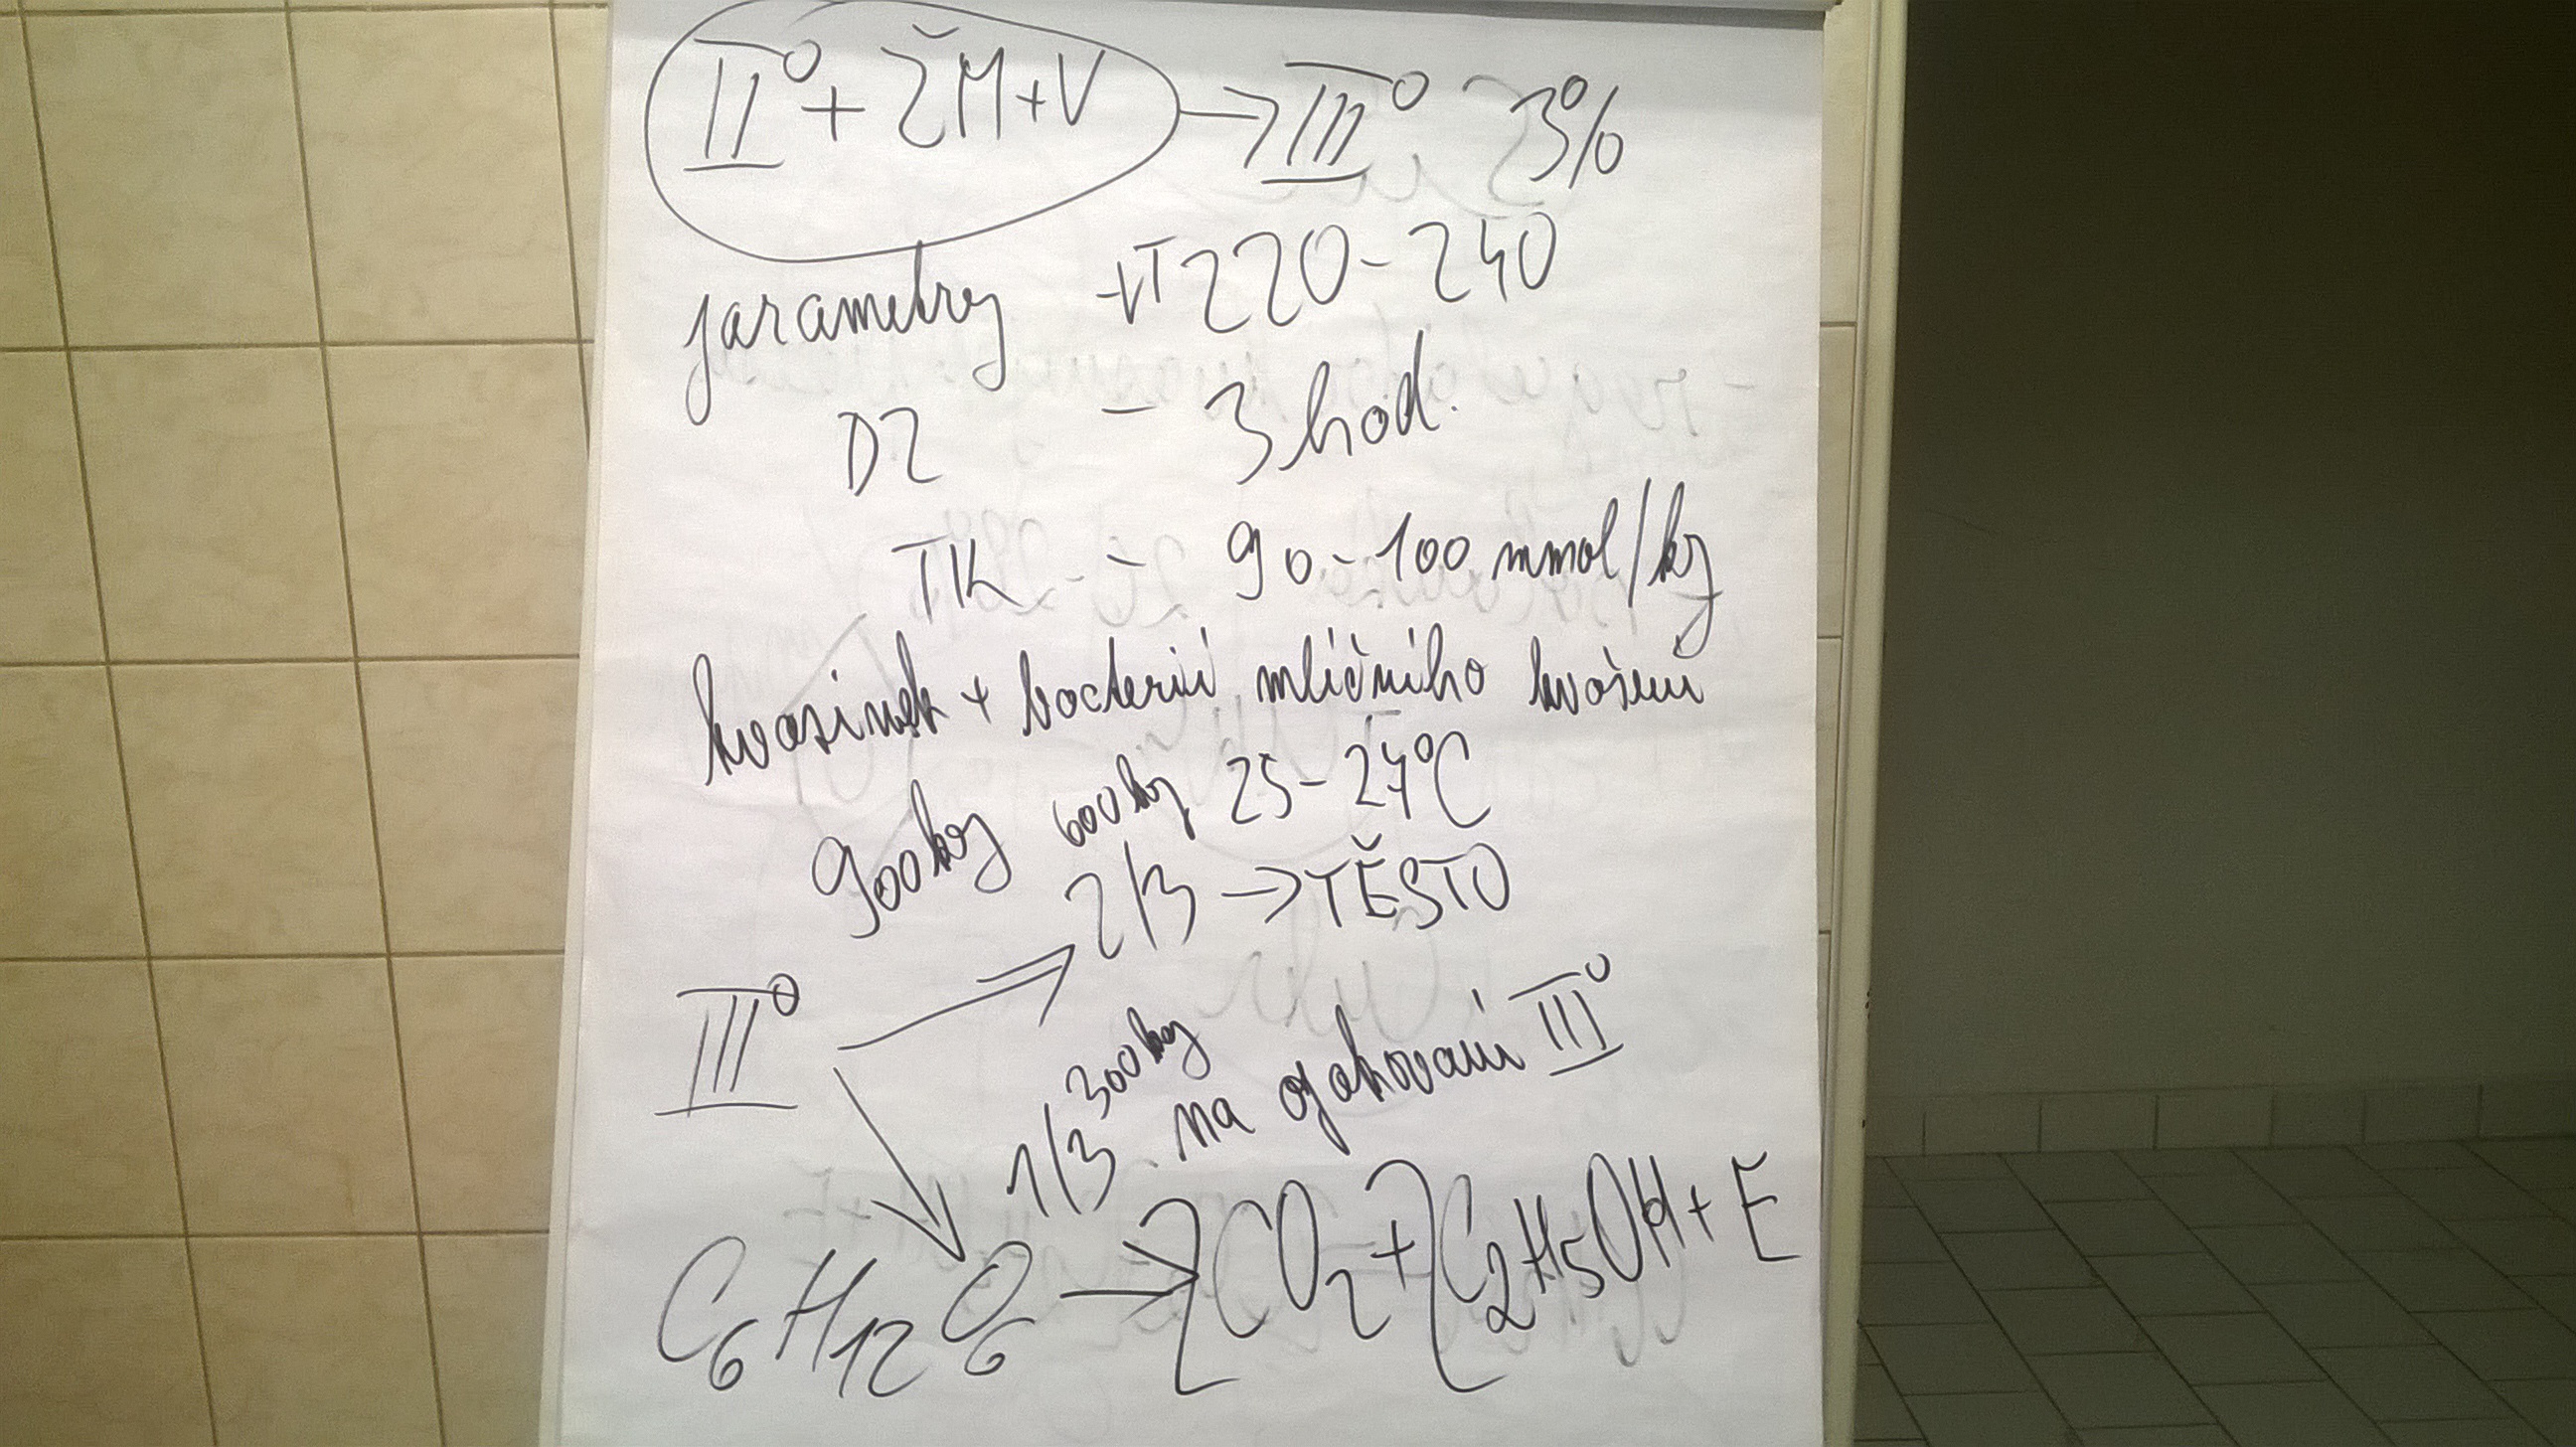 II° + ŽM+V → III° 3%
parametry - VT 220-240
DZ - 3 hod.
TK - 90-100 mmol/kg
kvasinek + bacterií mléčního kvašení
900kg 600kg 25-27°C
2/3 → TĚSTO
III°
300kg
1/3 na opakovaní III°
C6H12O6 → 2CO2 + 2C2H5OH + E